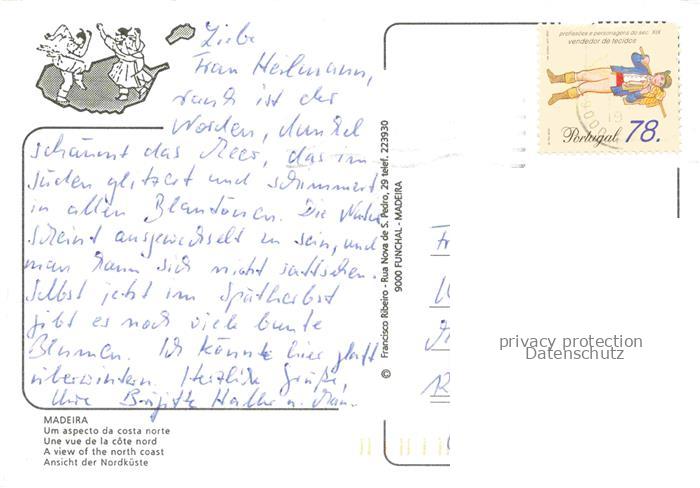 Liebe
Frau Heilmann,
rauh ist der
Norden, dunkel
schäumt das Meer, das im
Süden glitzert und schimmert
in allen Blautönen. Die Natur
scheint ausgewechselt zu sein, und
man kann sich nicht sattsehen.
Selbst jetzt im Spätherbst
gibt es noch viele bunte
Blumen. Ich könnte hier glatt
überwintern. Herzliche Grüße,
Ihre Brigitte
MADEIRA
Um aspecto da costa norte
Une vue de la côte nord
A view of the north coast
Ansicht der Nordküste
© Francisco Ribeiro - Rua Nova de S. Pedro, 29 telef. 223930
9000 FUNCHAL - MADEIRA
profissões e personagens do sec. XIX
vendedor de tecidos
Portugal 78.
privacy protection
Datenschutz